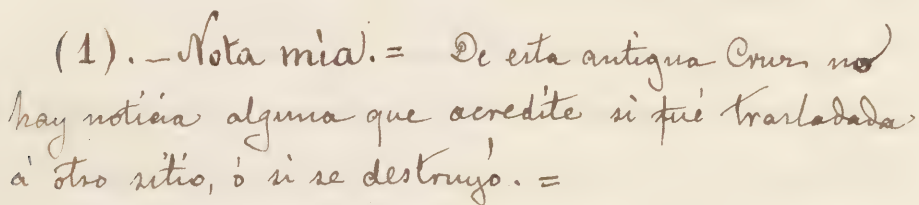 (1). _ Nota mia. = De esta antigua Cruz no
hay noticia alguna que acredite si fué trasladada
á otro sitio, ó si se destruyó. =